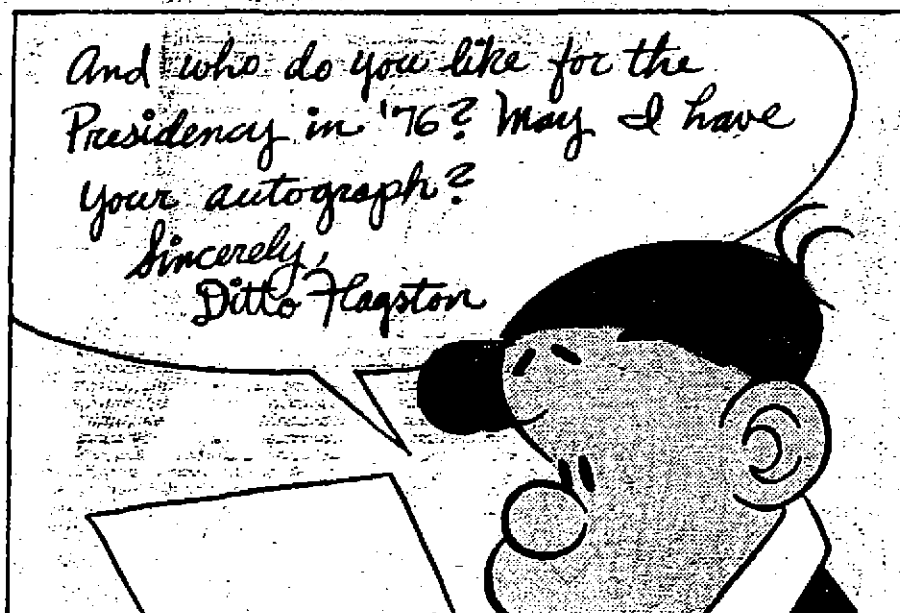 And who do you like for the
Presidency in '76? May I have
your autograph?
Sincerely,
Ditto Flagston